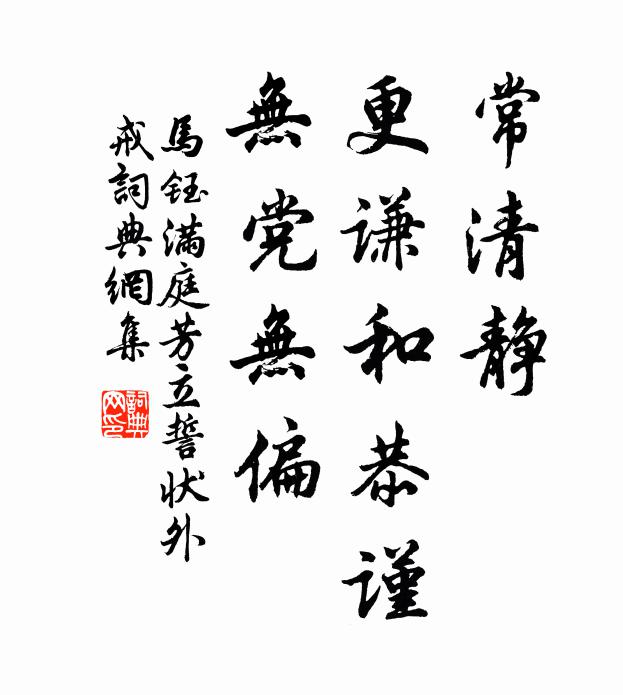 常清静
更谦和恭谨
無党無偏
馬鈺满庭芳立誓状外
戒詞典網集
詞典网印